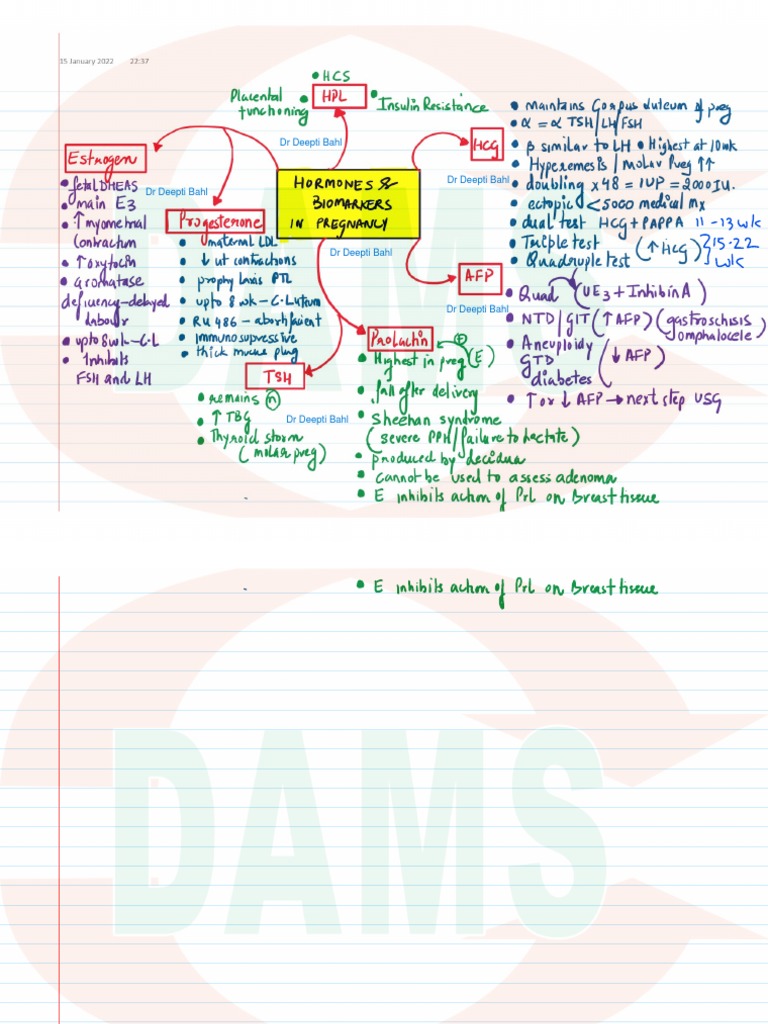 15 January 2022 22:37
HORMONES &
BIOMARKERS
IN PREGNANCY
Dr Deepti Bahl
HPL
• HCS
Placental
functioning •
• Insulin Resistance
Dr Deepti Bahl
HCG
• maintains Corpus Luteum of preg
• α = α TSH/LH/FSH
• β similar to LH • Highest at 10wk
• Hyperemesis / Molar Preg ↑↑
• doubling x48 = IUP = 2000 IU.
• ectopic < 5000 medical mx
• dual test HCG + PAPPA 11-13 wk
• Triple test
• Quadruple test
(↑ HCG) } 15-22
wk
Dr Deepti Bahl
AFP
• Quad (UE3 + Inhibin A)
• NTD/GIT (↑ AFP) (gastroschisis
omphalocele)
• Aneuploidy
GTD
diabetes
(↓ AFP)
• ↑ or ↓ AFP → next step USG
Dr Deepti Bahl
Estrogen
• fetal DHEAS
• main E3
• ↑ myometrial
Contraction
• ↑ oxytocin
• aromatase
deficiency-delayed
labour
• upto 8wk-C.L
• Inhibits
FSH and LH
Dr Deepti Bahl
Progesterone
• maternal LDL
• ↓ ut contractions
• prophylaxis PTL
• upto 8 wk - C. Lutum
• RU 486 - abortifacient
• immunosupressive
• thick mucus plug
TSH
• remains n
• ↑ TBG
• Thyroid storm
(molar preg)
Dr Deepti Bahl
Prolactin
+
(E)
• Highest in preg
• fall after delivery
• Sheehan syndrome
(severe PPH/failure to lactate)
• produced by decidua
• Cannot be used to assess adenoma
• E inhibits action of PrL on Breast tissue
DAMS
• E inhibits action of PrL on Breast tissue
DAMS